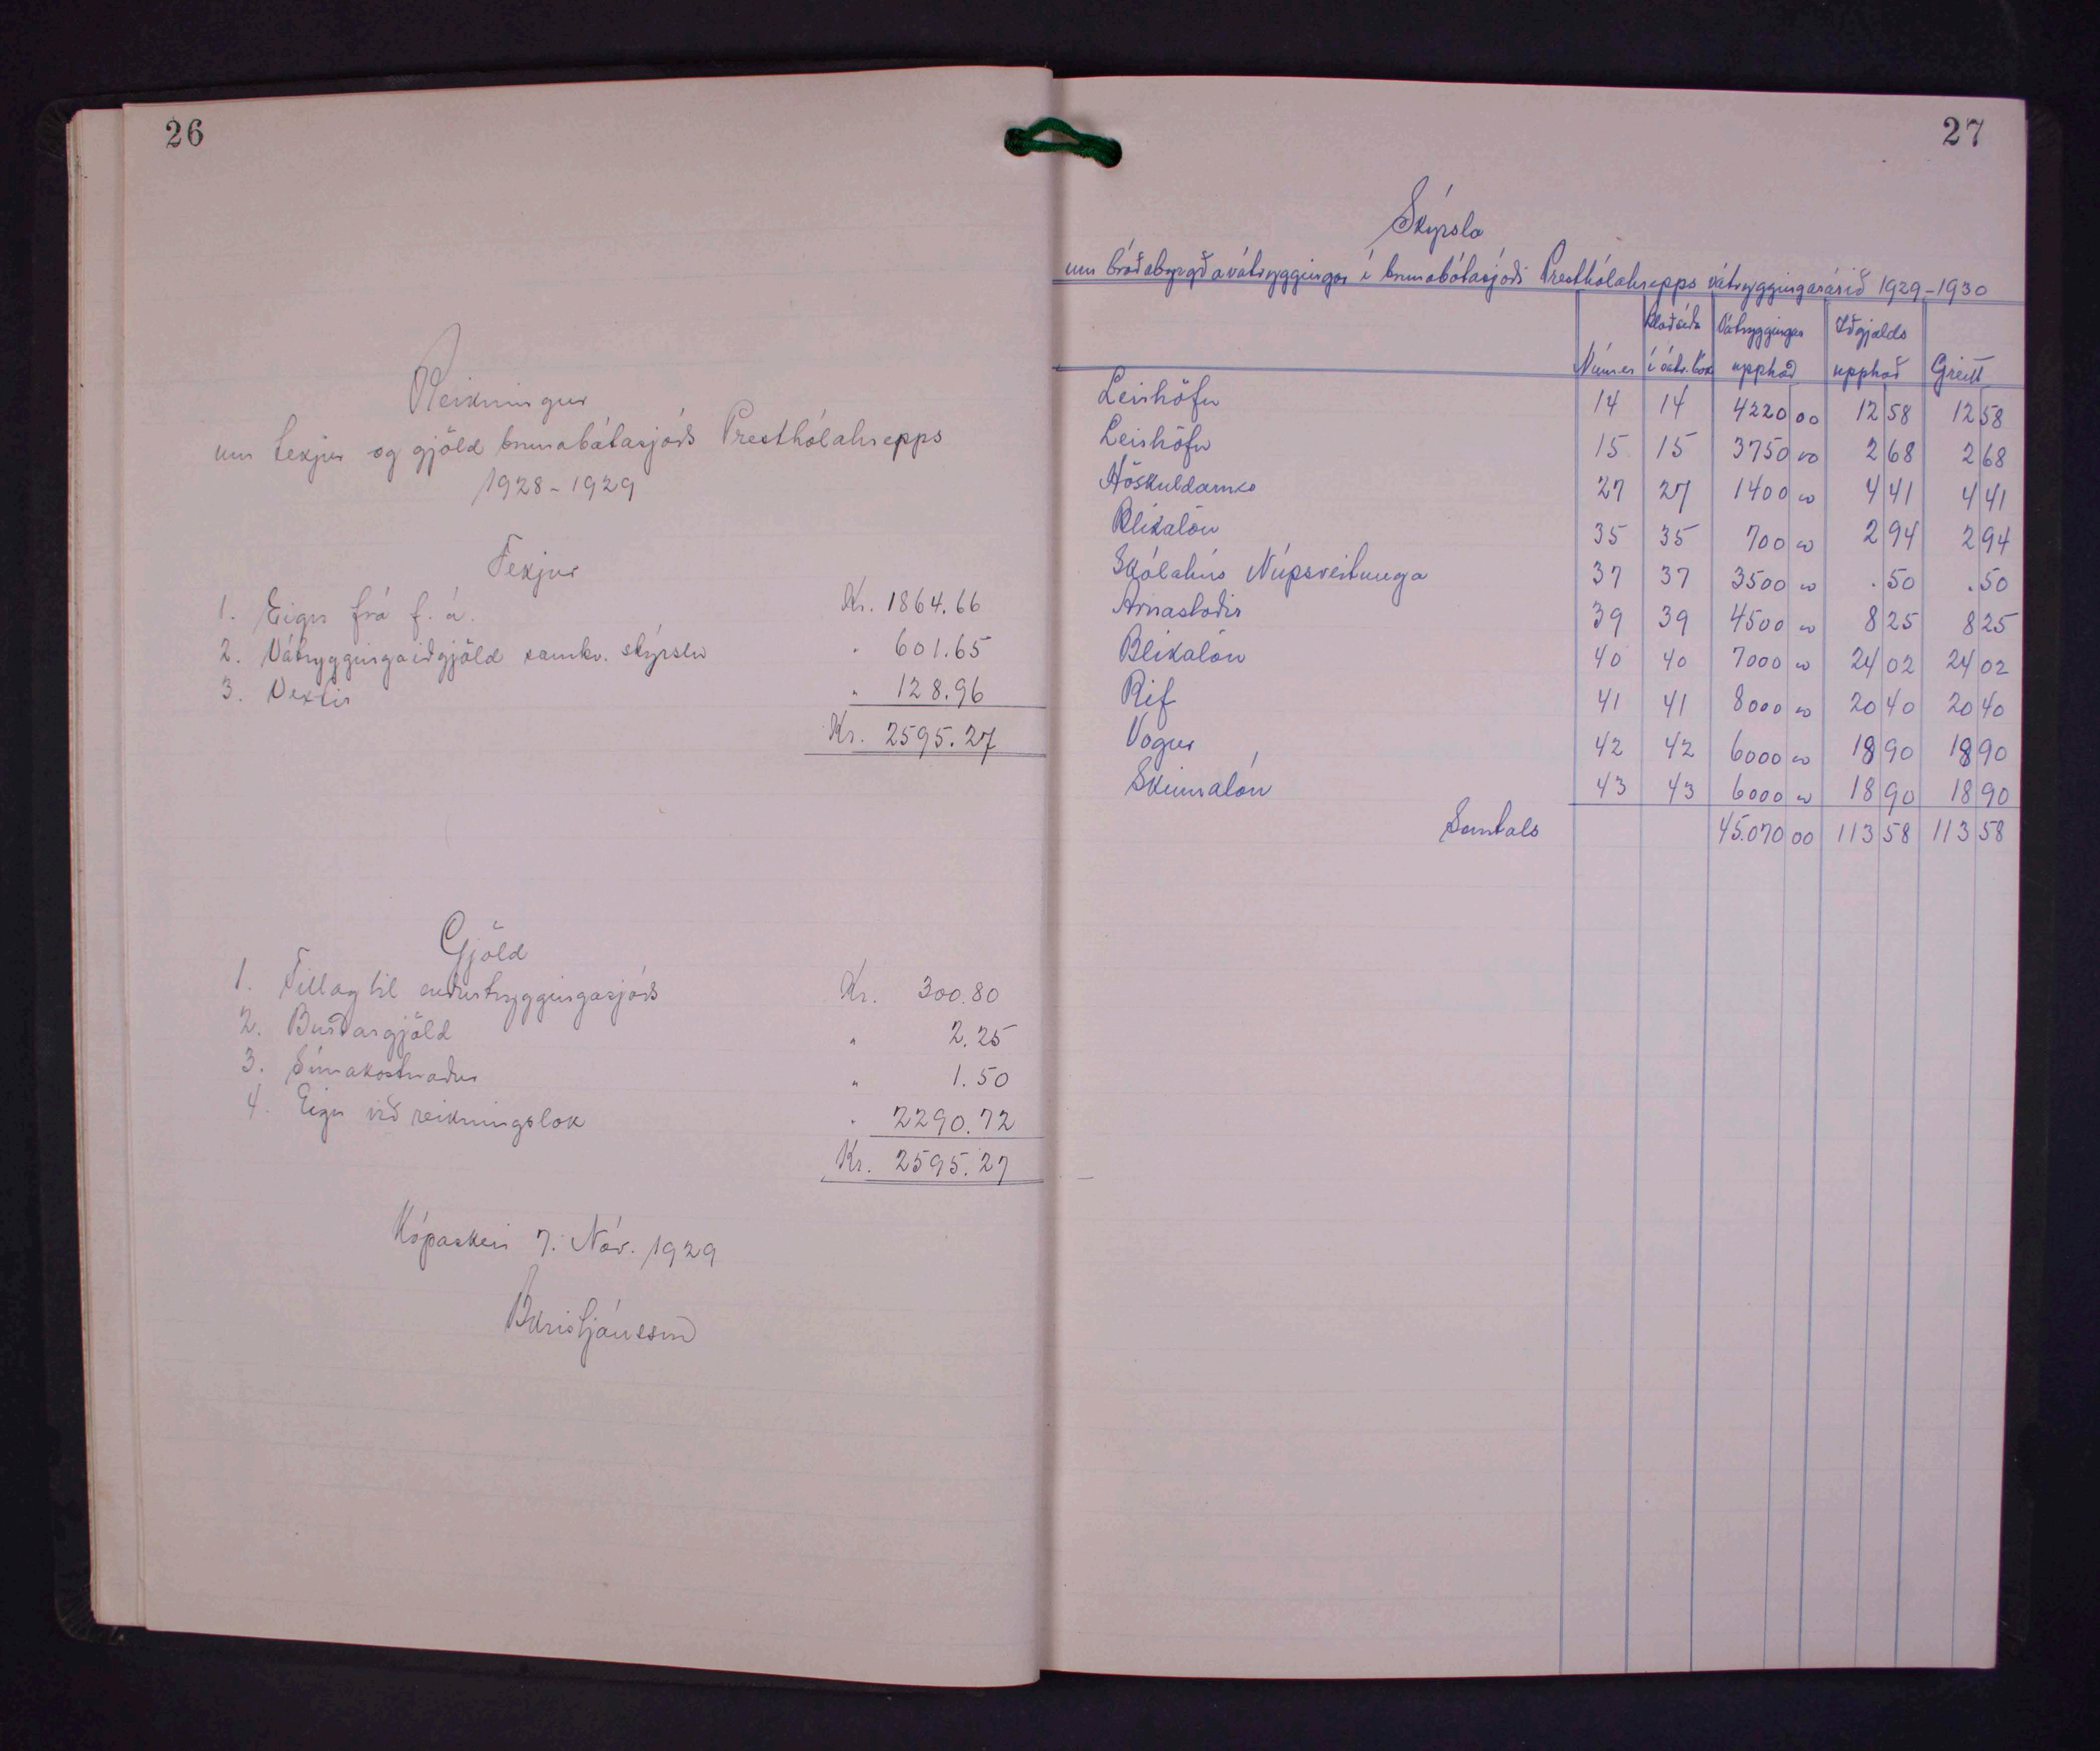 26
Reikningur
um tekjur og gjöld brunabótasjóðs Presthólahrepps
1928-1929
Tekjur
1. Eign frá f. á. Kr. 1864.66
2. Vátryggingaiðgjöld samkv. skýrslu " 601.65
3. Vextir " 128.96
Kr. 2595.27
Gjöld
1. Tillag til endurtryggingasjóðs Kr. 300.80
2. Burðargjöld " 2.25
3. Símakostnaður " 1.50
4. Eign við reikningslok " 2290.72
Kr. 2595.27
Kópaskeri 7. Nóv. 1929
BKristjánsson
27
Skýrsla
um bráðabyrgðavátryggingar í brunabótasjóði Presthólahrepps vátryggingarárið 1929-1930
Númer Blaðsíða í vátr. bók Vátryggingar upphæð Iðgjalds upphæð Greitt
Leirhöfn 14 14 4220 00 12 58 12 58
Leirhöfn 15 15 3750 00 2 68 2 68
Höskuldarnes 27 27 1400 00 4 41 4 41
Blikalón 35 35 700 00 2 94 2 94
Skólahús Núpsveitunga 37 37 3500 00 . 50 . 50
Arnastaðir 39 39 4500 00 8 25 8 25
Blikalón 40 40 7000 00 24 02 24 02
Rif 41 41 8000 00 20 40 20 40
Vogur 42 42 6000 00 18 90 18 90
Skinnalón 43 43 6000 00 18 90 18 90
Samtals 45.070 00 113 58 113 58